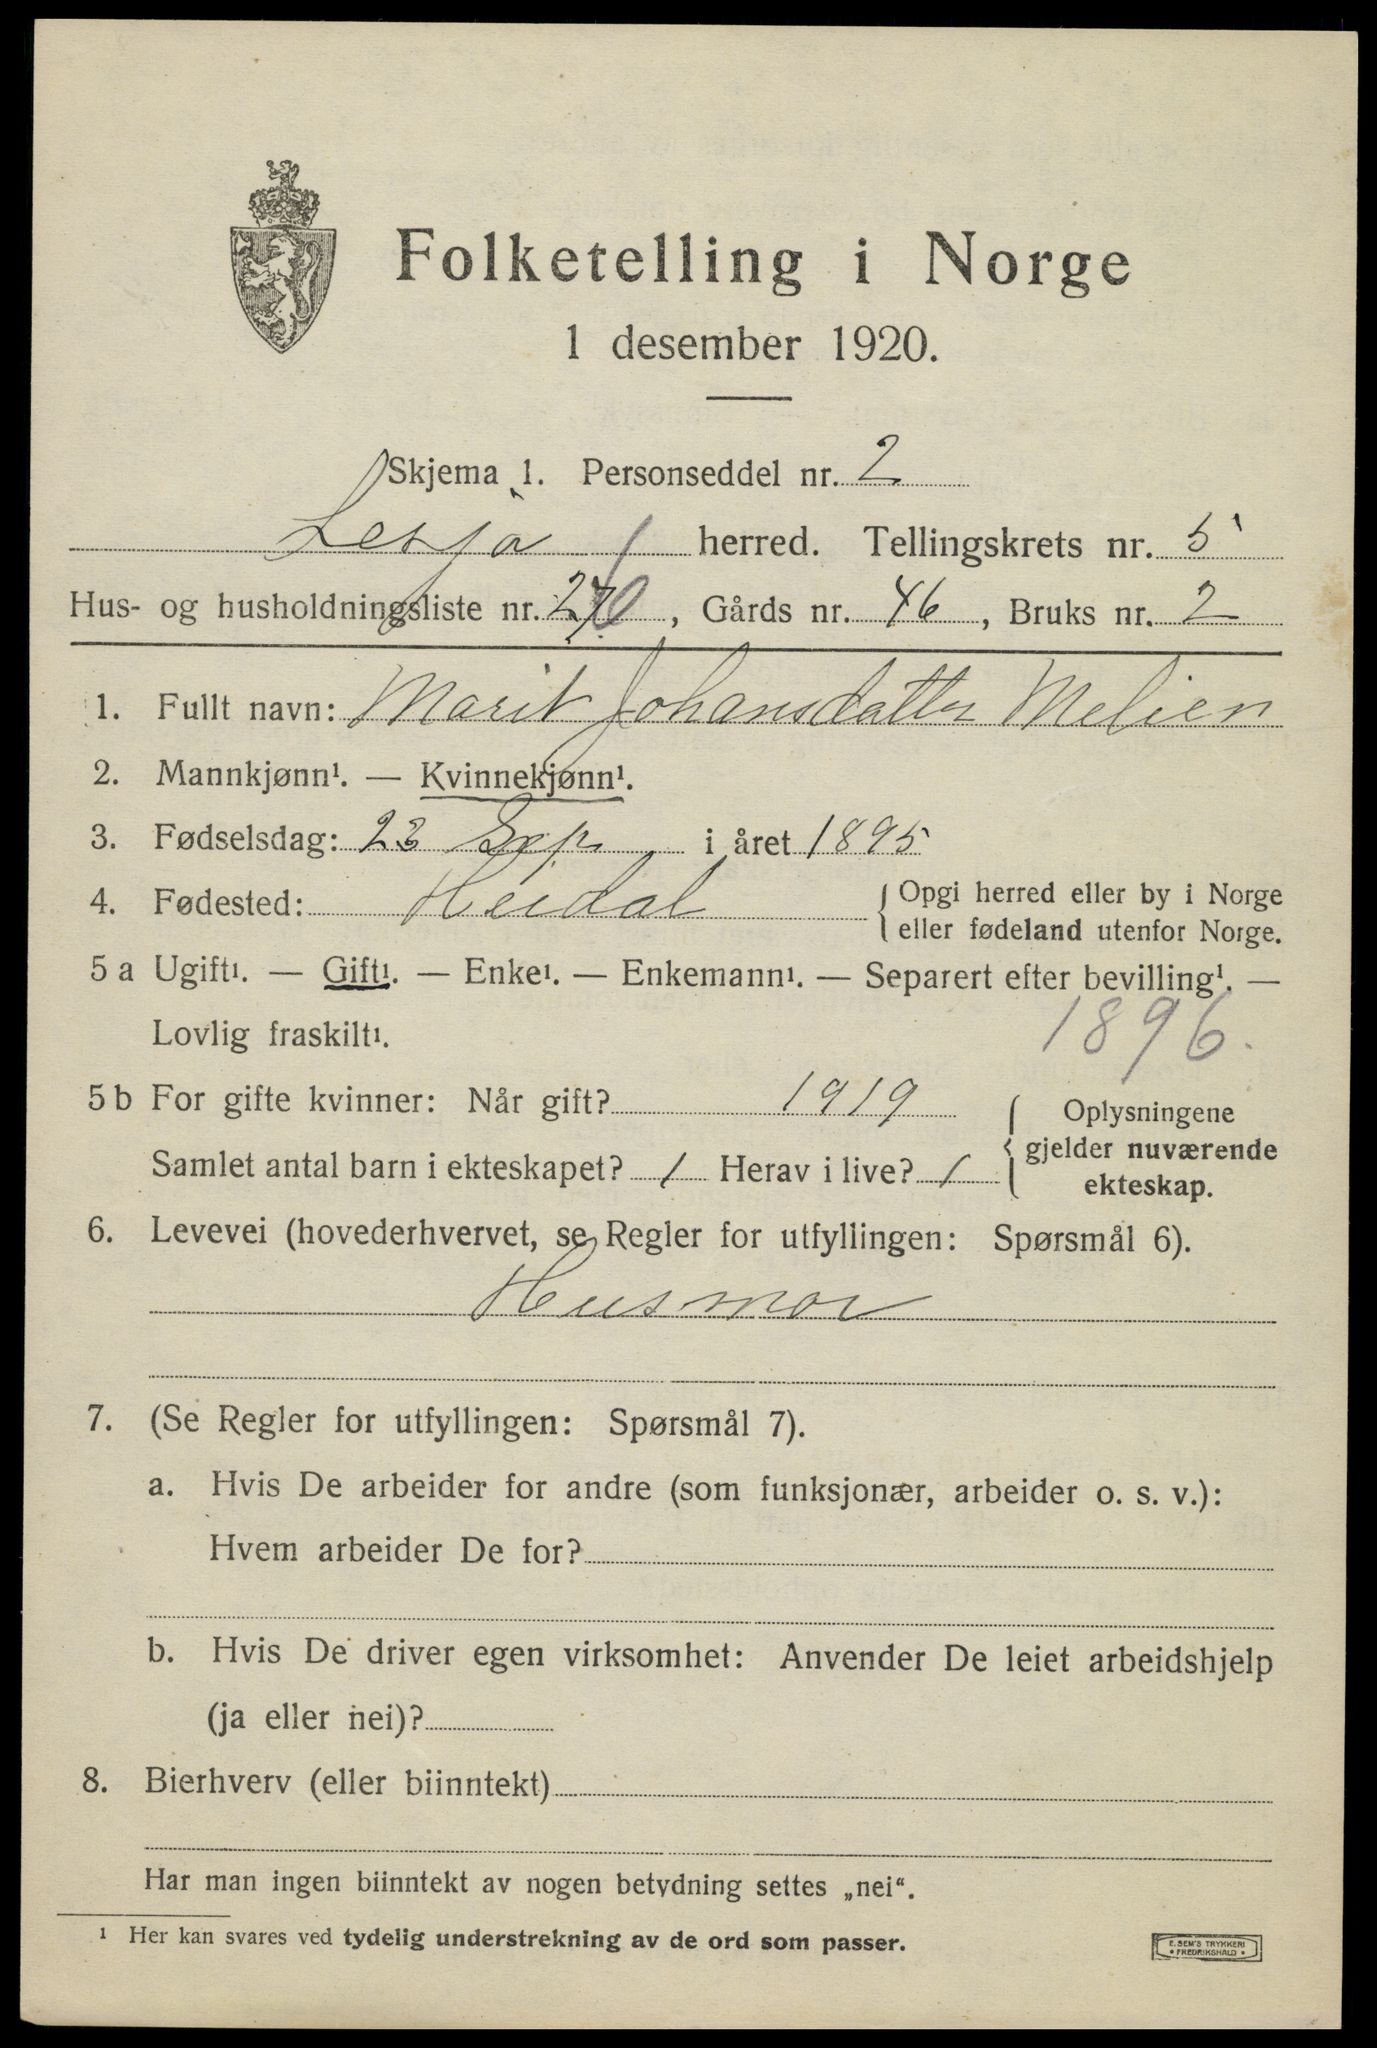 Folketelling i Norge
1 desember 1920.
Skjema 1. Personseddel nr. 2
Lesja herred. Tellingskrets nr. 5
Hus- og husholdningsliste nr. , Gårds nr. 46, Bruks nr. 2
1. Fullt navn: Marit Johansdatter Melien
2. Mannkjønn¹. — Kvinnekjønn¹.
3. Fødselsdag: 23 Sep i året 1895
4. Fødested: Heidal { Opgi herred eller by i Norge
eller fødeland utenfor Norge.
5 a Ugift¹. — Gift¹. — Enke¹. — Enkemann¹. — Separert efter bevilling¹. —
Lovlig fraskilt¹. 1896.
5 b For gifte kvinner: Når gift? 1919
Samlet antal barn i ekteskapet? 1 Herav i live? 1
{ Oplysningene
gjelder nuværende
ekteskap.
6. Levevei (hovederhvervet, se Regler for utfyllingen: Spørsmål 6).
Husmor
7. (Se Regler for utfyllingen: Spørsmål 7).
a. Hvis De arbeider for andre (som funksjonær, arbeider o. s. v.):
Hvem arbeider De for?
b. Hvis De driver egen virksomhet: Anvender De leiet arbeidshjelp
(ja eller nei)?
8. Bierhverv (eller biinntekt)
Har man ingen biinntekt av nogen betydning settes „nei“.
¹ Her kan svares ved tydelig understrekning av de ord som passer.
E. SEM'S TRYKKERI
• FREDRIKSHALD •